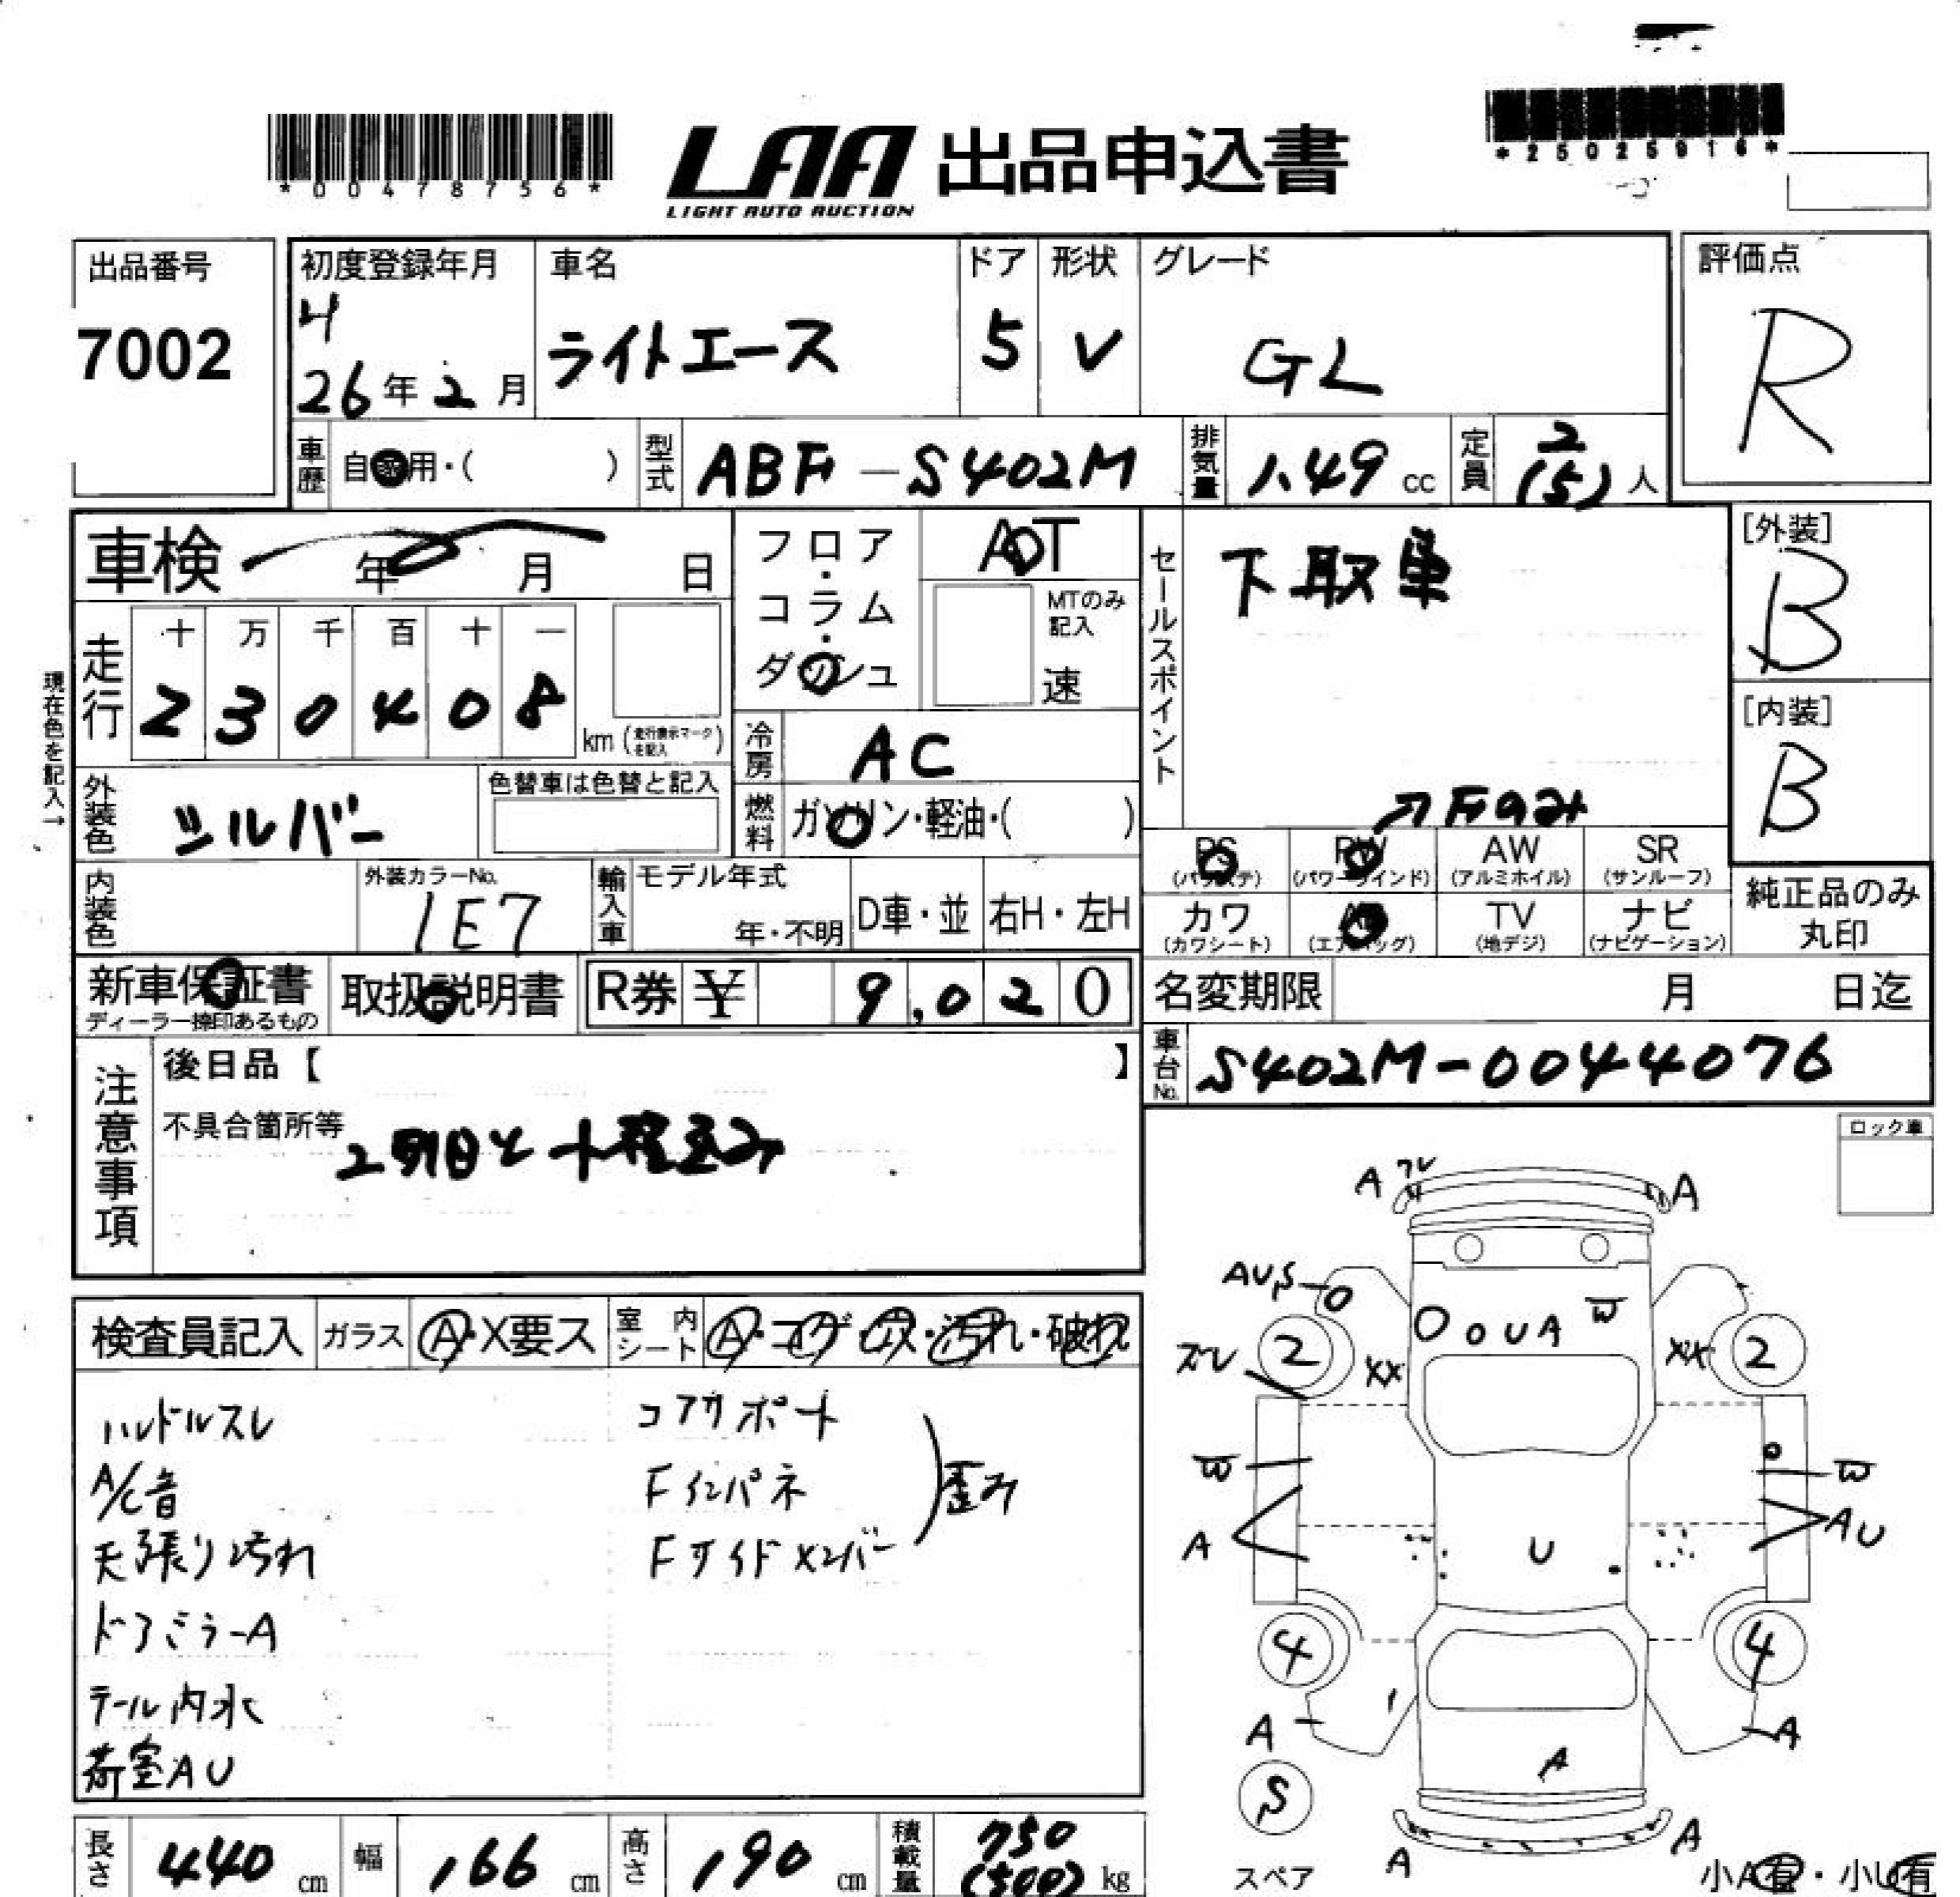 *00478756*
LAA 出品申込書
LIGHT AUTO AUCTION
*25025916*
出品番号
7002
初度登録年月
H
26年2月
車名
ライトエース
ドア
5
形状
V
グレード
GL
評価点
R
車歴
自家用・( )
型式
ABF-S402M
排気量
1.49 cc
定員
2
(5)人
車検 年 月 日
現在色を記入→
走行
十 万 千 百 十 一
2 3 0 4 0 8
km (走行表示マークを記入)
フロア・コラム・ダッシュ
AT
MTのみ記入
速
冷房
AC
燃料
ガソリン・軽油・( )
セールスポイント
下取車
↗Fのみ
[外装]
B
[内装]
B
外装色
シルバー
色替車は色替と記入
内装色
外装カラーNo.
1E7
輸入車
モデル年式
年・不明
D車・並
右H・左H
PS
(パワステ)
PW
(パワーウインド)
AW
(アルミホイル)
SR
(サンルーフ)
カワ
(カワシート)
AB
(エアバッグ)
TV
(地デジ)
ナビ
(ナビゲーション)
純正品のみ
丸印
新車保証書
ディーラー捺印あるもの
取扱説明書
R券 ¥ 9,020
名変期限 月 日迄
車台No.
S402M-0044076
注意事項
後日品【 】
不具合箇所等
ロック車
検査員記入
ガラス
A・X要ス
室内シート
A・コゲ・穴・汚れ・破れ
ハンドルスレ
A/C音
天張り汚れ
ドアミラーA
テール内水
荷室AU
コアサポート
Fインパネ
Fサイドメンバー
歪み
A ワレ A
AUS
O O U A W
ズレ 2 XX XX 2
W W
A U AU
4 4
A A
A
S
スペア
A A
小A有・小U有
長さ
440 cm
幅
166 cm
高さ
190 cm
積載量
750
(500) kg